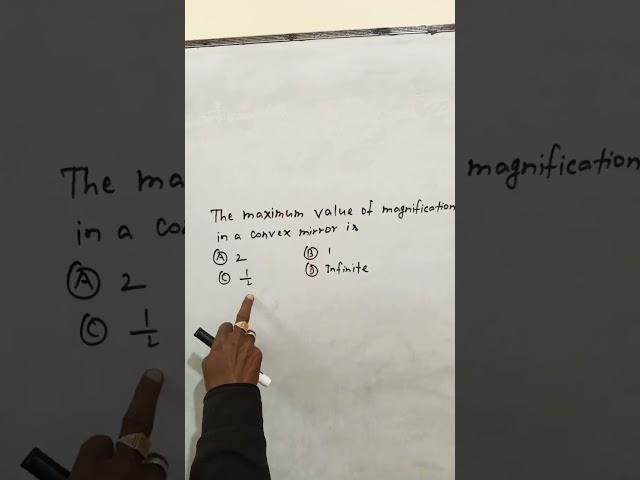 The maximum value of magnification
in a convex mirror is
Ⓐ 2 Ⓑ 1
Ⓒ 1/2 Ⓓ Infinite